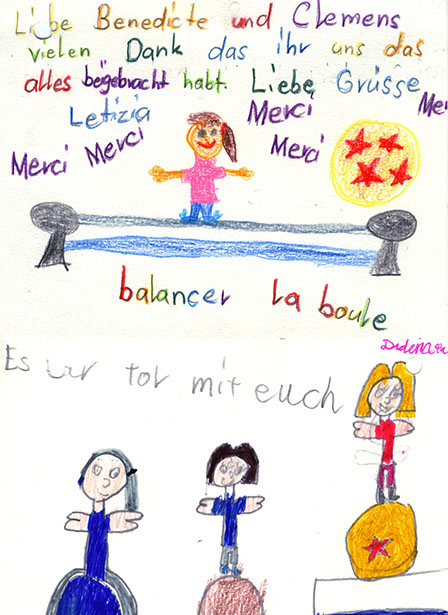 Liebe Benedicte und Clemens
vielen Dank das ihr uns das
alles beigebracht habt. Liebe Grüsse
Letizia Merci Mer
Merci Merci Merci
balancer la boule
Es war tol mit euch